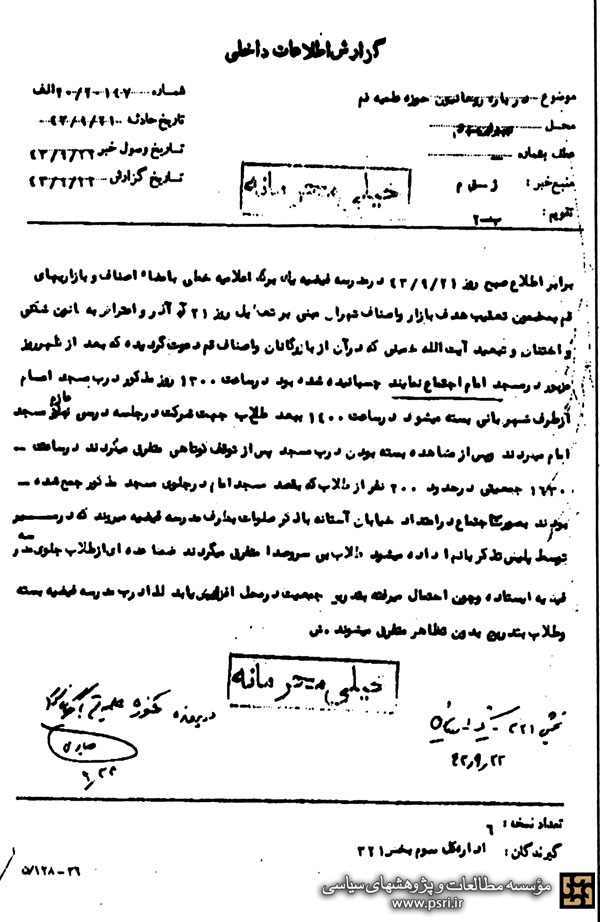 گزارش اطلاعات داخلی
موضوع درباره روحانیون حوزه علمیه قم
شماره ۲۰/۲۰۱۴۷ الف
محل
تاریخ حادثه ۴۳/۹/۲۱
عطف بشماره
تاریخ وصول خبر ۴۳/۹/۲۲
منبع خبر :
تاریخ گزارش ۴۳/۹/۲۲
تقویم : ب-۲
خیلی محرمانه
برابر اطلاع صبح روز ۴۳/۹/۲۱ در مدرسه فیضیه یک برگ اعلامیه خطی بامضاء اصناف و بازاریهای
قم بمضمون تعقیب هدف بازار و اصناف تهران مبنی بر تعطیل روز ۲۱ آذر و اعتراض به قانون شکنی
و اختناق و تبعید آیت الله خمینی که در آن از بازرگانان و اصناف قم دعوت گردیده که بعد از ظهر روز
مزبور در مسجد امام اجتماع نمایند چسبانیده شده بود در ساعت ۱۳۰۰ روز مذکور درب مسجد امام
از طرف شهربانی بسته میشود در ساعت ۱۴۰۰ ببعد طلاب جهت شرکت در جلسه درس مسجد
امام میروند و پس از مشاهده بسته بودن درب مسجد پس از توقف کوتاهی متفرق میگردند در ساعت -
۱۶۳۰ جمعیتی در حدود ۲۰۰ نفر از طلاب که بقصد مسجد امام در جلوی مسجد مذکور جمع شده -
بودند بصورت اجتماع در امتداد خیابان آستانه با ذکر صلوات بطرف مدرسه فیضیه میروند که در مسیر
توسط پلیس تذکر بآنها داده میشود طلاب بی سروصدا متفرق میگردند ضمنا عده ای از طلاب جلوی مدرسه
فیضیه ایستاده و چون احتمال میرفته بتدریج جمعیت در محل افزایش یابد لذا درب مدرسه فیضیه بسته
و طلاب بتدریج بدون تظاهر متفرق میشوند .
خیلی محرمانه
بخش ۳۲۱
۴۳،۹،۲۲
در پرونده حوزه علمیه قم
۹/۲۳
تعداد نسخه : ۶
گیرندگان : اداره کل سوم بخش ۳۲۱
۵/۱۲۸-۲۶
مؤسسه مطالعات و پژوهشهای سیاسی
www.psri.ir